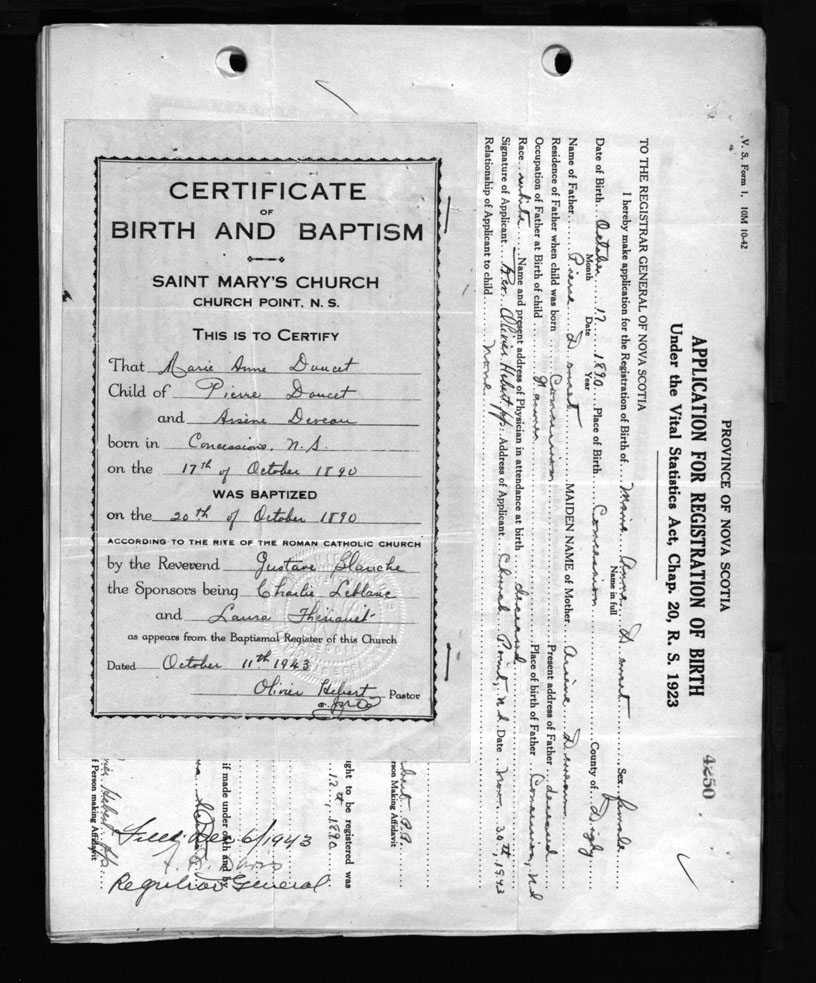 CERTIFICATE
OF
BIRTH AND BAPTISM
SAINT MARY'S CHURCH
CHURCH POINT, N. S.
THIS IS TO CERTIFY
That Marie Anne Doucet
Child of Pierre Doucet
and Arsène Deveau
born in Concessions, N.S.
on the 17th of October 1890
WAS BAPTIZED
on the 20th of October 1890
ACCORDING TO THE RITE OF THE ROMAN CATHOLIC CHURCH
by the Reverend Gustave Blanche
the Sponsors being Charlie Leblanc
and Laura
as appears from the Baptismal Register of this Church
Dated October 11th 1943
Olivier Hébert Pastor
V. S. Form 1. 10M 10-42
PROVINCE OF NOVA SCOTIA
4250
APPLICATION FOR REGISTRATION OF BIRTH
Under the Vital Statistics Act, Chap. 20, R. S. 1923
TO THE REGISTRAR GENERAL OF NOVA SCOTIA
I hereby make application for the Registration of Birth of Marie Anne Doucet Sex female
Name in full
Date of Birth October 17 1890 Place of Birth Concession County of Digby
Month Date Year
Name of Father Pierre Doucet MAIDEN NAME of Mother Arsène Deveau
Residence of Father when child was born Concession Present address of Father deceased
Occupation of Father at Birth of child farmer Place of birth of Father Concession, N.S.
Race white Name and present address of Physician in attendance at birth deceased
Signature of Applicant Rev. Olivier Hébert pp. Address of Applicant Church Point, N.S. Date Nov. 30th, 1943
Relationship of Applicant to child None
rson Making Affidavit
ght to be registered was
17th, 1890
if made under oath and by
f Person making Affidavit
Filed Dec 6/1943
Registrar General